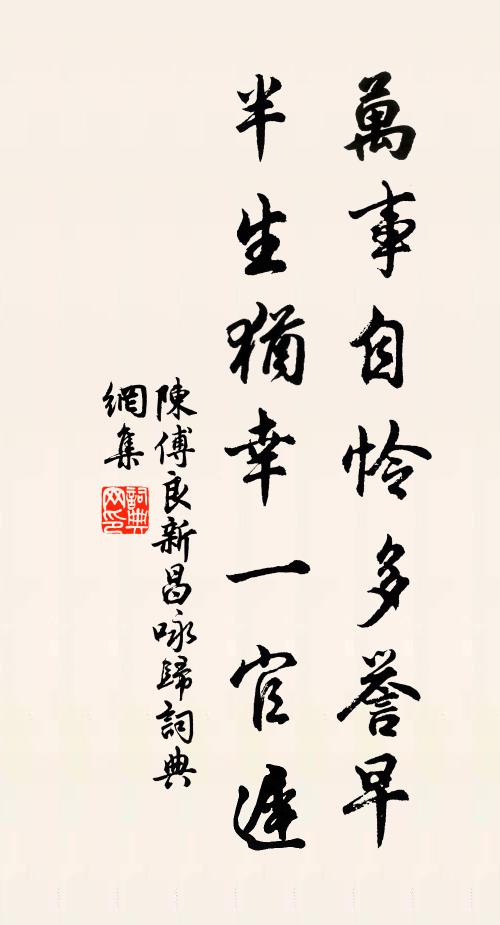 萬事自怜多誉早
半生猶幸一官遲
陳傅良新昌咏歸詞典
網集
詞典网印